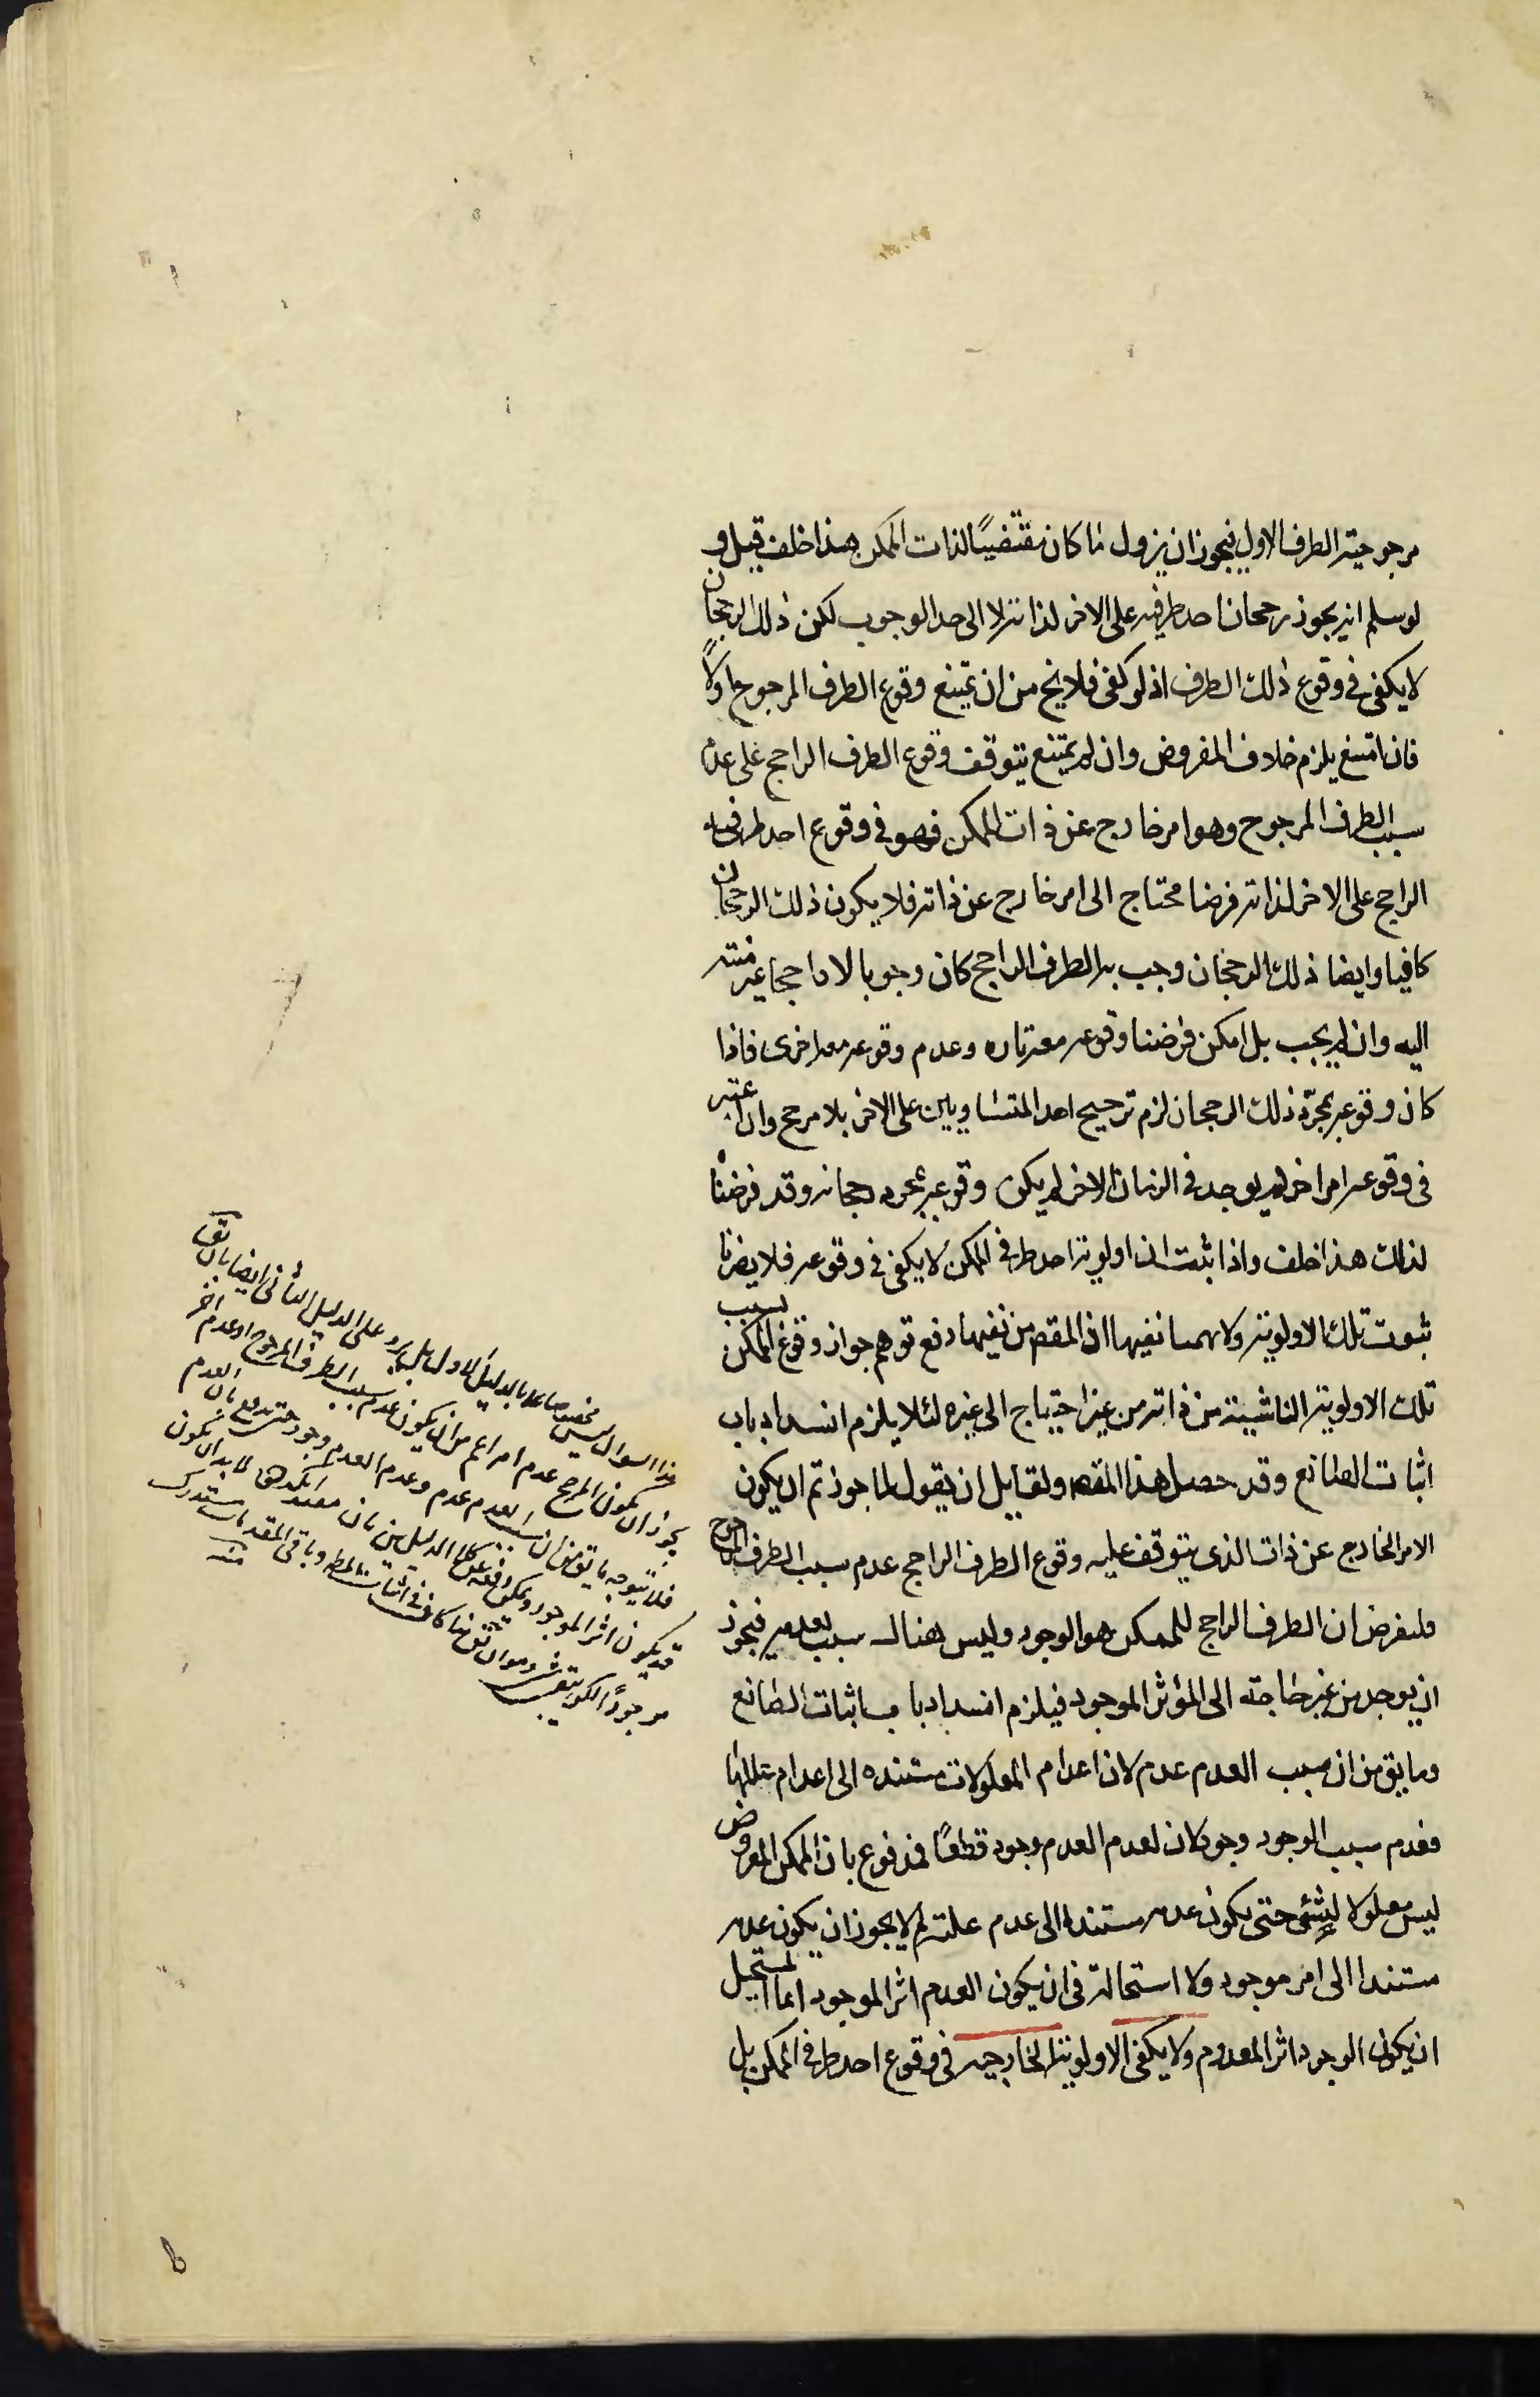 مرجوحية الطرف الاول فيجوز ان يزول ما كان مقتضيًا لذات الممكن هذا خلف قيل و
لو سلم انه يجوز رجحان احد طرفيه على الاخر لذاته لا الى حد الوجوب لكن ذلك الرجحان
لا يكفى فى وقوع ذلك الطرف اذ لو كفى فلا يخ من ان يمتنع وقوع الطرف المرجوح اولا
فان امتنع يلزم خلاف المفروض وان لم يمتنع يتوقف وقوع الطرف الراجح على عدم
سبب الطرف المرجوح وهو امر خارج عن ذات الممكن فهو فى وقوع احد طرفيه
الراجح على الاخر لذاته فرضا محتاج الى امر خارج عن ذاته فلا يكون ذلك الرجحان
كافيا وايضا ذلك الرجحان وجب به الطرف الراجح كان وجوبا لا راجحا غير منته
اليه وان لم يجب بل امكن فرضنا وقوعه معه تاره وعدم وقوعه معه اخرى فاذا
كان وقوعه بمجرد ذلك الرجحان لزم ترجيح احد المتساويين على الاخر بلا مرجح وان اعتبر
فى وقوعه امر اخر لم يوجد فى الزمان الاخر لم يكن وقوعه بمجرد رجحانه وقد فرضنا
لذلك هذا خلف واذا ثبت ان اولوية احد طرفى الممكن لا يكفى فى وقوعه فلا يضرنا
ثبوت تلك الاولوية ولا يهمنا نفيها اذ المقصم من نفيها دفع توهم جواز وقوع الممكن بسبب
تلك الاولوية الناشية من ذاته من غير احتياج الى غيره لئلا يلزم انسداد باب
اثبات الصانع وقد حصل هذا المقصم ولقايل ان يقول لما جوزتم ان يكون
الامر الخارج عن ذات الذى يتوقف عليه وقوع الطرف الراجح عدم سبب الطرف المرجوح
فلنفرض ان الطرف الراجح للممكن هو الوجود وليس هناك سبب لعدمه فيجوز
ان يوجد من غير حاجة الى المؤثر الموجود فيلزم انسداد باب اثبات الصانع
وما يق من ان سبب العدم عدم لان اعدام المعلولات مستنده الى اعدام عللها
فعدم سبب الوجود وجود لان لعدم العدم وجود قطعًا فمدفوع بان الممكن المفروض
ليس معلولا لشئ حتى يكون عدمه مستندا الى عدم علته لم لا يجوز ان يكون عدمه
مستندا الى امر موجود ولا استحالة فى ان يكون العدم اثرا لموجود انما المستحيل
ان يكون الوجود اثرا لمعدوم ولا يكفى الاولوية الخارجيه فى وقوع احد طرفى الممكن بل
هذا السوال ليس مخصوصا بالدليل الاول بل يرد على الدليل الثانى ايضا بان يق
يجوز ان يكون المرجح عدم امر اعم من ان يكون عدم سبب الطرف المرجوح او عدم اخر
فلا يتوجه ما يق من ان سبب العدم عدم وعدم العدم وجود حتى يدفع بان العدم
قد يكون اثرا لموجود ويمكن دفعه عن كلا الدليلين بان لا بد ان يكون
موجودًا لكن
منه